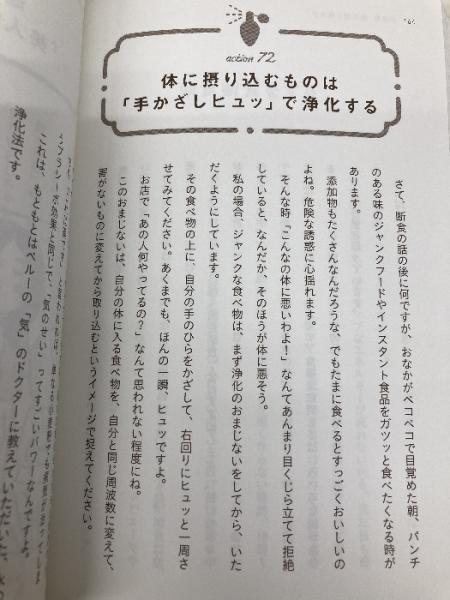 action 72
体に摂り込むものは
「手かざしヒュッ」で浄化する
さて、断食の話の後に何ですが、おなかがペコペコで目覚めた朝、パンチ
のある味のジャンクフードやインスタント食品をガツッと食べたくなる時が
あります。
添加物もたくさんなんだろうな、でもたまに食べるとすっごくおいしいの
よね。危険な誘惑に心揺れます。
そんな時「こんなの体に悪いわよ!」なんてあんまり目くじら立てて拒絶
していると、なんだか、そのほうが体に悪そう。
私の場合、ジャンクな食べ物は、まず浄化のおまじないをしてから、いた
だくようにしています。
その食べ物の上に、自分の手のひらをかざして、右回りにヒュッと一周さ
せてみてください。あくまでも、ほんの一瞬、ヒュッですよ。
お店で「あの人何やってるの?」なんて思われない程度にね。
このおまじないは、自分の体に入る食べ物を、自分と同じ周波数に変えて、
害がないものに変えてから取り込むというイメージで捉えてください。
効果と同じで、「気のせい」ってすごいパワーなんですよ。
これは、もともとはペルーの「気」のドクターに教えていただいた、
浄化法です。